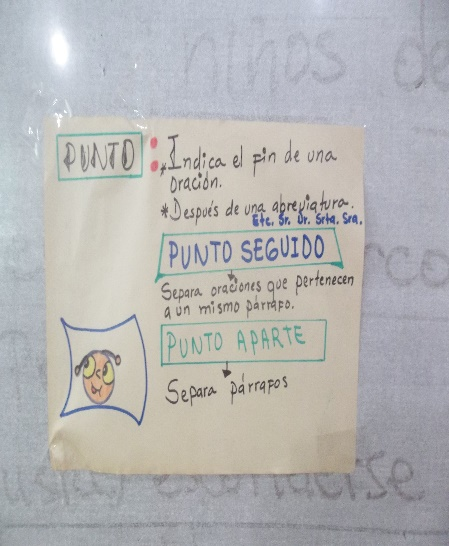 niños de
PUNTO :
* Indica el fin de una
oración.
* Después de una abreviatura.
Etc. Sr. Dr. Srta. Sra.
PUNTO SEGUIDO
Separa oraciones que pertenecen
a un mismo párrafo.
PUNTO APARTE
Separa párrafos
esconderse